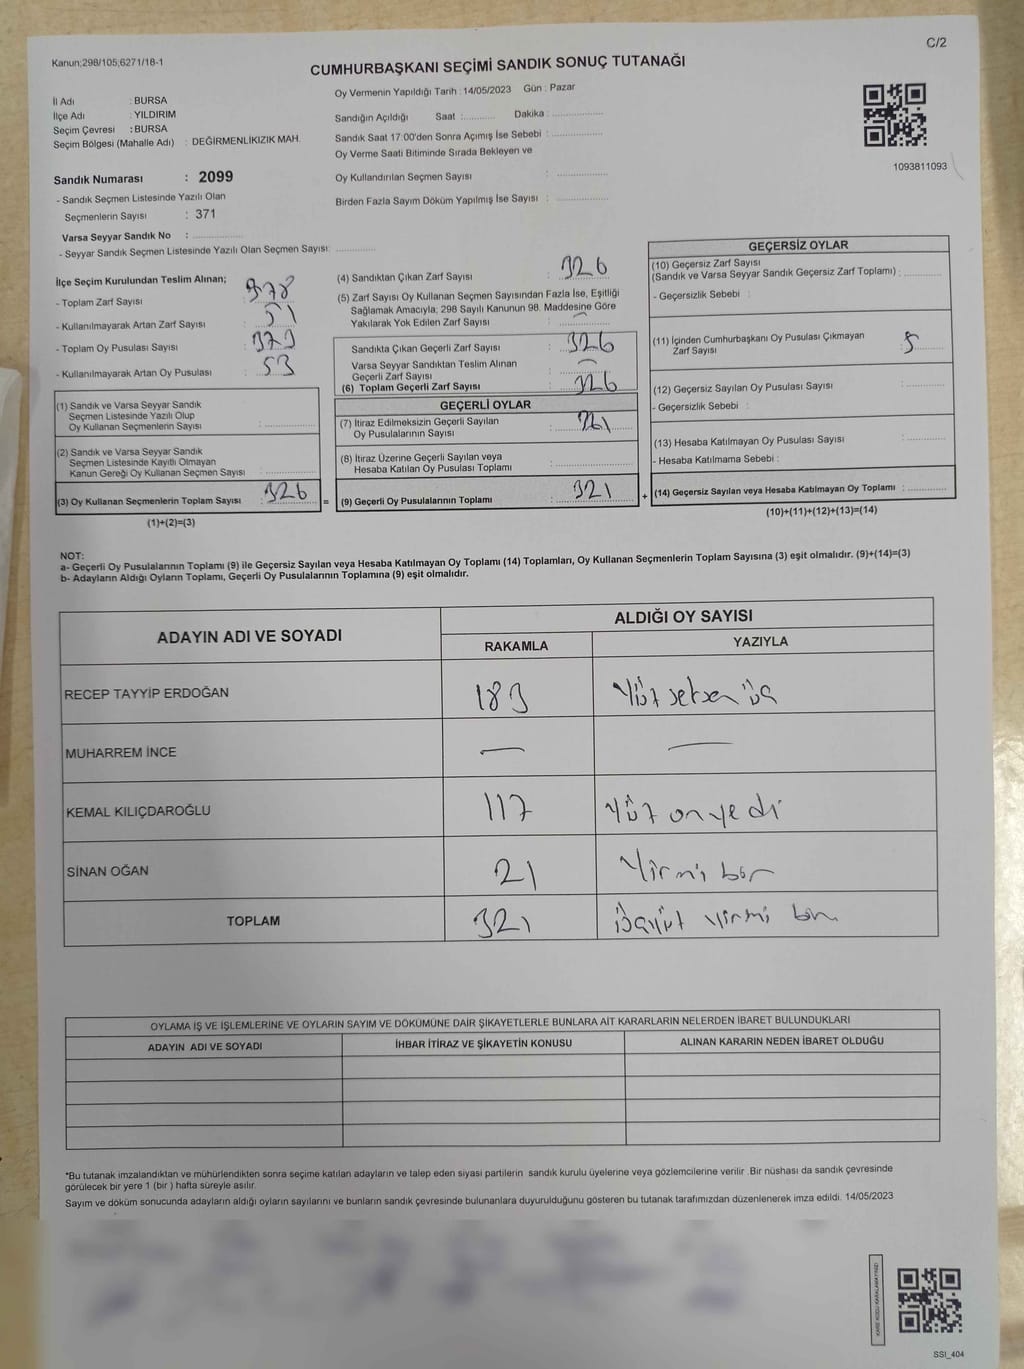 C/2
Kanun;298/105;6271/18-1
CUMHURBAŞKANI SEÇİMİ SANDIK SONUÇ TUTANAĞI
İl Adı : BURSA
İlçe Adı : YILDIRIM
Seçim Çevresi : BURSA
Seçim Bölgesi (Mahalle Adı) : DEĞİRMENLİKIZIK MAH.
Sandık Numarası : 2099
- Sandık Seçmen Listesinde Yazılı Olan
Seçmenlerin Sayısı : 371
Varsa Seyyar Sandık No :
- Seyyar Sandık Seçmen Listesinde Yazılı Olan Seçmen Sayısı:
Oy Vermenin Yapıldığı Tarih : 14/05/2023 Gün : Pazar
Sandığın Açıldığı Saat : Dakika :
Sandık Saat 17:00'den Sonra Açımış İse Sebebi :
Oy Verme Saati Bitiminde Sırada Bekleyen ve
Oy Kullandırılan Seçmen Sayısı :
Birden Fazla Sayım Döküm Yapılmış İse Sayısı :
1093811093
İlçe Seçim Kurulundan Teslim Alınan;
- Toplam Zarf Sayısı : 378
- Kullanılmayarak Artan Zarf Sayısı : 51
- Toplam Oy Pusulası Sayısı : 379
- Kullanılmayarak Artan Oy Pusulası : 53
(1) Sandık ve Varsa Seyyar Sandık
Seçmen Listesinde Yazılı Olup
Oy Kullanan Seçmenlerin Sayısı :
(2) Sandık ve Varsa Seyyar Sandık
Seçmen Listesinde Kayıtlı Olmayan
Kanun Gereği Oy Kullanan Seçmen Sayısı :
(3) Oy Kullanan Seçmenlerin Toplam Sayısı : 326
(1)+(2)=(3)
=
(4) Sandıktan Çıkan Zarf Sayısı : 326
(5) Zarf Sayısı Oy Kullanan Seçmen Sayısından Fazla İse, Eşitliği
Sağlamak Amacıyla; 298 Sayılı Kanunun 98. Maddesine Göre
Yakılarak Yok Edilen Zarf Sayısı : —
Sandıkta Çıkan Geçerli Zarf Sayısı : 326
Varsa Seyyar Sandıktan Teslim Alınan
Geçerli Zarf Sayısı : —
(6) Toplam Geçerli Zarf Sayısı : 326
GEÇERLİ OYLAR
(7) İtiraz Edilmeksizin Geçerli Sayılan
Oy Pusulalarının Sayısı :
(8) İtiraz Üzerine Geçerli Sayılan veya
Hesaba Katılan Oy Pusulası Toplamı :
(9) Geçerli Oy Pusulalarının Toplamı : 321
+
GEÇERSİZ OYLAR
(10) Geçersiz Zarf Sayısı
(Sandık ve Varsa Seyyar Sandık Geçersiz Zarf Toplamı) :
- Geçersizlik Sebebi :
(11) İçinden Cumhurbaşkanı Oy Pusulası Çıkmayan
Zarf Sayısı : 5
(12) Geçersiz Sayılan Oy Pusulası Sayısı :
- Geçersizlik Sebebi :
(13) Hesaba Katılmayan Oy Pusulası Sayısı :
- Hesaba Katılmama Sebebi :
(14) Geçersiz Sayılan veya Hesaba Katılmayan Oy Toplamı :
(10)+(11)+(12)+(13)=(14)
NOT:
a- Geçerli Oy Pusulalarının Toplamı (9) ile Geçersiz Sayılan veya Hesaba Katılmayan Oy Toplamı (14) Toplamları, Oy Kullanan Seçmenlerin Toplam Sayısına (3) eşit olmalıdır. (9)+(14)=(3)
b- Adayların Aldığı Oyların Toplamı, Geçerli Oy Pusulalarının Toplamına (9) eşit olmalıdır.
ADAYIN ADI VE SOYADI
ALDIĞI OY SAYISI
RAKAMLA YAZIYLA
RECEP TAYYİP ERDOĞAN 183 Yüz seksen üç
MUHARREM İNCE — —
KEMAL KILIÇDAROĞLU 117 Yüz on yedi
SİNAN OĞAN 21 Yirmi bir
TOPLAM 321 üçyüz yirmi bir
OYLAMA İŞ VE İŞLEMLERİNE VE OYLARIN SAYIM VE DÖKÜMÜNE DAİR ŞİKAYETLERLE BUNLARA AİT KARARLARIN NELERDEN İBARET BULUNDUKLARI
ADAYIN ADI VE SOYADI İHBAR İTİRAZ VE ŞİKAYETİN KONUSU ALINAN KARARIN NEDEN İBARET OLDUĞU
*Bu tutanak imzalandıktan ve mühürlendikten sonra seçime katılan adayların ve talep eden siyasi partilerin sandık kurulu üyelerine veya gözlemcilerine verilir .Bir nüshası da sandık çevresinde
görülecek bir yere 1 (bir ) hafta süreyle asılır.
Sayım ve döküm sonucunda adayların aldığı oyların sayılarını ve bunların sandık çevresinde bulunanlara duyurulduğunu gösteren bu tutanak tarafımızdan düzenlenerek imza edildi. 14/05/2023
KARE KODU KARALAMAYINIZ!
SSI_404